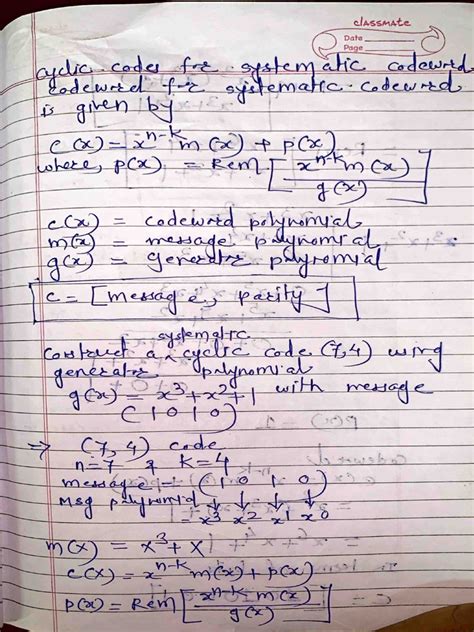 classmate
Date
Page
cyclic codes for systematic codeword
codeword for systematic codeword
is given by
c(x) = x^{n-k} m(x) + p(x)
where, p(x) = Rem [ x^{n-k} m(x) / g(x) ]
c(x) = codeword polynomial
m(x) = message polynomial
g(x) = Generator polynomial
c = [message, parity]
systematic
construct a ^ cyclic code (7,4) using
generator polynomial
g(x) = x³+x²+1 with message
(1010)
⇒ (7,4) code
n=7 & k=4
message = (1 0 1 0)
Msg polynomial ↓ ↓ ↓ ↓
= x³ x² x¹ x⁰
m(x) = x³+x
c(x) = x^{n-k} m(x) + p(x)
p(x) = Rem [ x^{n-k} m(x) / g(x) ]